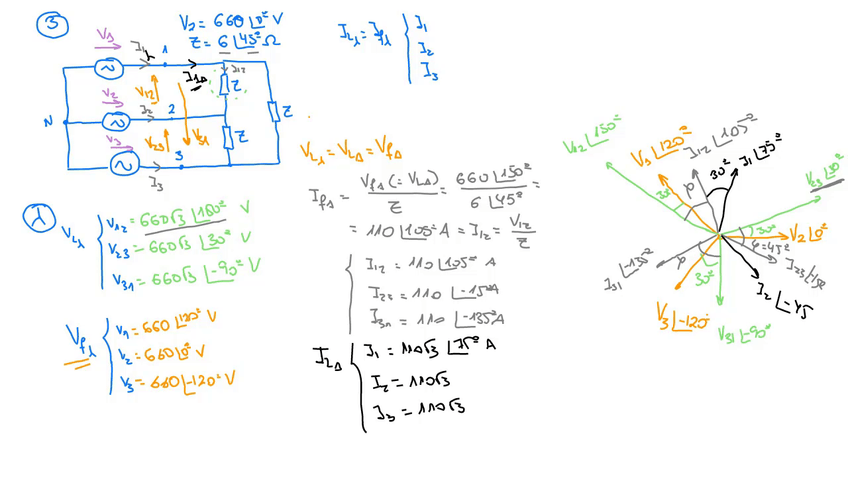 3
V2 = 660 ∠0º V
Z = 6 ∠45º Ω
V1
I1
1
I1Δ
I12
Z
V12
V2
I2
2
N
Z
V3
V23
V31
Z
3
I3
I Lλ = I fλ { I1
I2
I3
V Lλ = V LΔ = V fΔ
I fΔ = V fΔ (= V LΔ) / Z = 660 ∠150º / 6 ∠45º =
= 110 ∠105º A = I12 = V12 / Z
I12 = 110 ∠105º A
I23 = 110 ∠-15º A
I31 = 110 ∠-135º A
I LΔ { I1 = 110√3 ∠75º A
I2 = 110√3
I3 = 110√3
λ
V Lλ { V12 = 660√3 ∠180º V
V23 = 660√3 ∠30º V
V31 = 660√3 ∠-90º V
V fλ { V1 = 660 ∠120º V
V2 = 660 ∠0º V
V3 = 660 ∠-120º V
V12 ∠150º
V1 ∠120º
I12 ∠105º
I1 ∠75º
30º
V23 ∠30º
30º
φ
30º
V2 ∠0º
φ=45º
I23 ∠-15º
I31 ∠-135º
φ
30º
I2 ∠-45
V3 ∠-120º
V31 ∠-90º